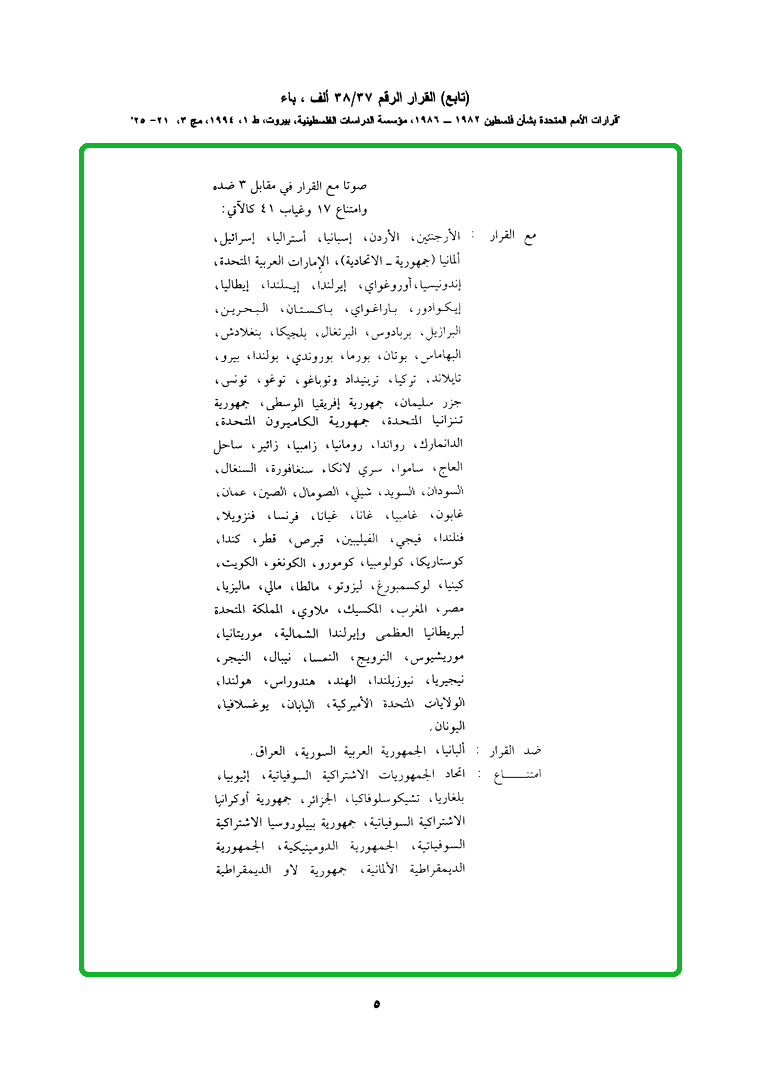 (تابع) القرار الرقم ٣٨/٣٧ ألف ، باء
"قرارات الأمم المتحدة بشأن فلسطين ١٩٨٢ ــ ١٩٨٦، مؤسسة الدراسات الفلسطينية، بيروت، ط ١، ١٩٩٤، مج ٣، ٢١- ٢٥"
صوتا مع القرار في مقابل ٣ ضده
وامتناع ١٧ وغياب ٤١ كالآتي:
مع القرار : الأرجنتين، الأردن، إسبانيا، أستراليا، إسرائيل،
ألمانيا (جمهورية ـ الاتحادية)، الإمارات العربية المتحدة،
إندونيسيا، أوروغواي، إيرلندا، إيسلندا، إيطاليا،
إيكوادور، باراغواي، باكستان، البحرين،
البرازيل، بربادوس، البرتغال، بلجيكا، بنغلادش،
البهاماس، بوتان، بورما، بوروندي، بولندا، بيرو،
تايلاند، تركيا، ترينيداد وتوباغو، توغو، تونس،
جزر سليمان، جمهورية إفريقيا الوسطى، جمهورية
تنزانيا المتحدة، جمهورية الكاميرون المتحدة،
الدانمارك، رواندا، رومانيا، زامبيا، زائير، ساحل
العاج، ساموا، سري لانكا، سنغافورة، السنغال،
السودان، السويد، شيلي، الصومال، الصين، عمان،
غابون، غامبيا، غانا، غيانا، فرنسا، فنزويلا،
فنلندا، فيجي، الفيليبين، قبرص، قطر، كندا،
كوستاريكا، كولومبيا، كومورو، الكونغو، الكويت،
كينيا، لوكسمبورغ، ليزوتو، مالطا، مالي، ماليزيا،
مصر، المغرب، المكسيك، ملاوي، المملكة المتحدة
لبريطانيا العظمى وإيرلندا الشمالية، موريتانيا،
موريشيوس، النرويج، النمسا، نيبال، النيجر،
نيجيريا، نيوزيلندا، الهند، هندوراس، هولندا،
الولايات المتحدة الأميركية، اليابان، يوغسلافيا،
اليونان.
ضد القرار : ألبانيا، الجمهورية العربية السورية، العراق.
امتنـــــاع : اتحاد الجمهوريات الاشتراكية السوفياتية، إثيوبيا،
بلغاريا، تشيكوسلوفاكيا، الجزائر، جمهورية أوكرانيا
الاشتراكية السوفياتية، جمهورية بييلوروسيا الاشتراكية
السوفياتية، الجمهورية الدومينيكية، الجمهورية
الديمقراطية الألمانية، جمهورية لاو الديمقراطية
٥